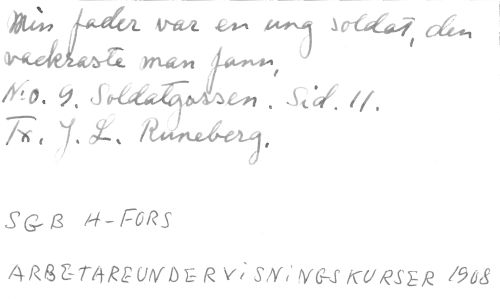 Min fader var en ung soldat, den
vackraste man fann,
N:o. 9. Soldatgossen. Sid. 11.
Tx. J. L. Runeberg.
SGB H-FORS
ARBETAREUNDERVISNINGSKURSER 1908